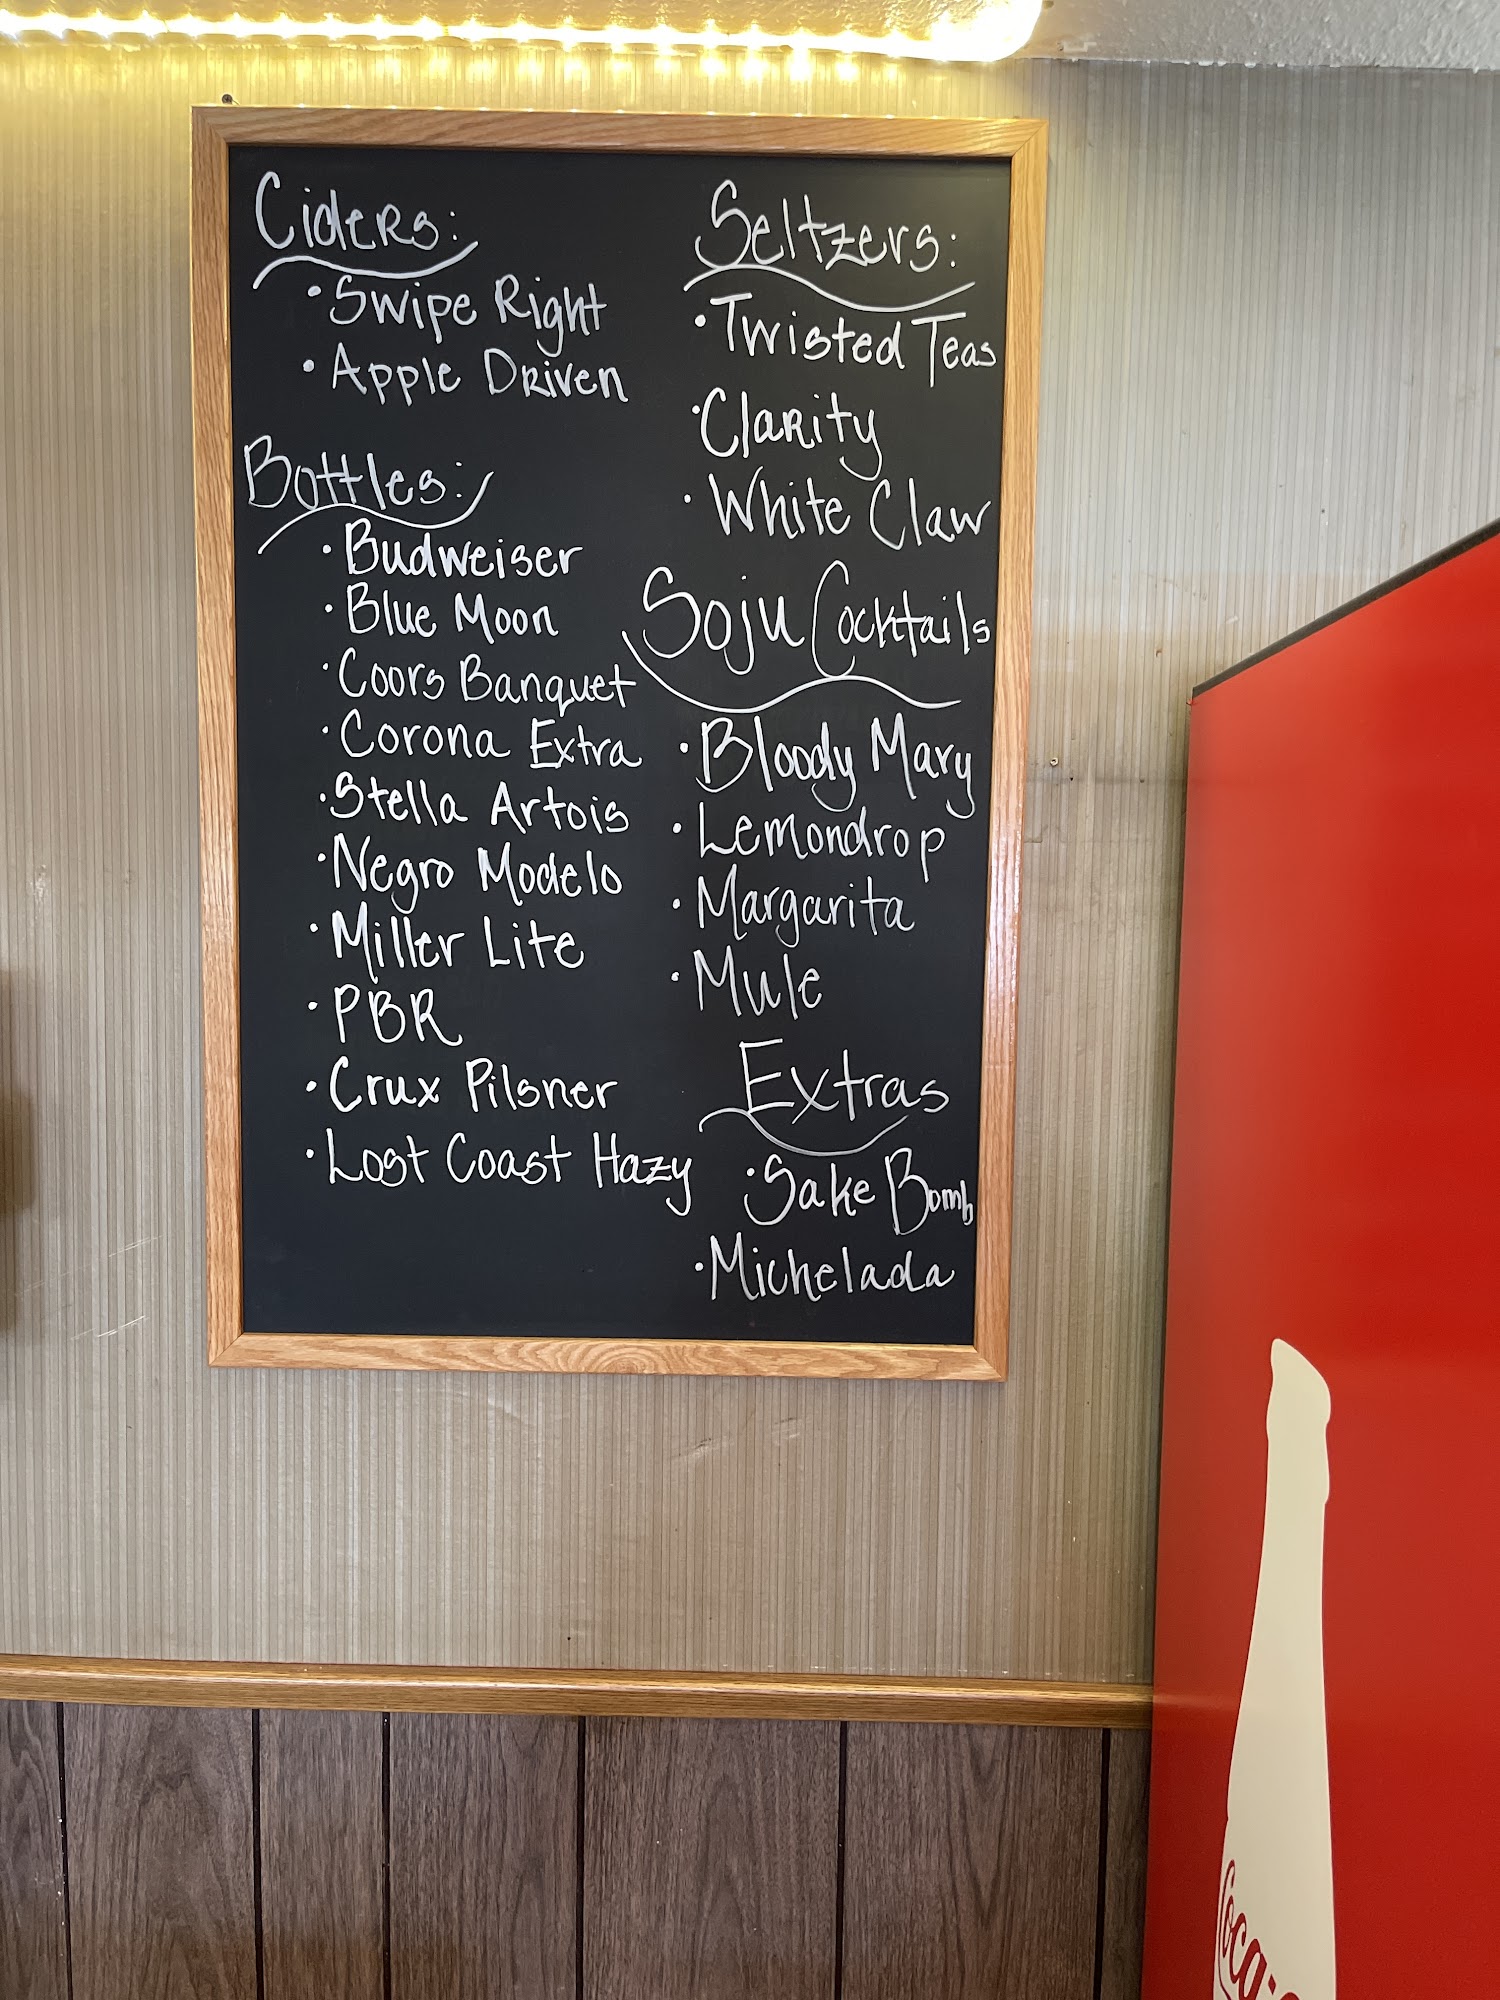 Ciders:
• Swipe Right
• Apple Driven
Bottles:
• Budweiser
• Blue Moon
• Coors Banquet
• Corona Extra
• Stella Artois
• Negro Modelo
• Miller Lite
• PBR
• Crux Pilsner
• Lost Coast Hazy
Seltzers:
• Twisted Teas
• Clarity
• White Claw
Soju Cocktails
• Bloody Mary
• Lemondrop
• Margarita
• Mule
Extras
• Sake Bomb
• Michelada
Coca-C